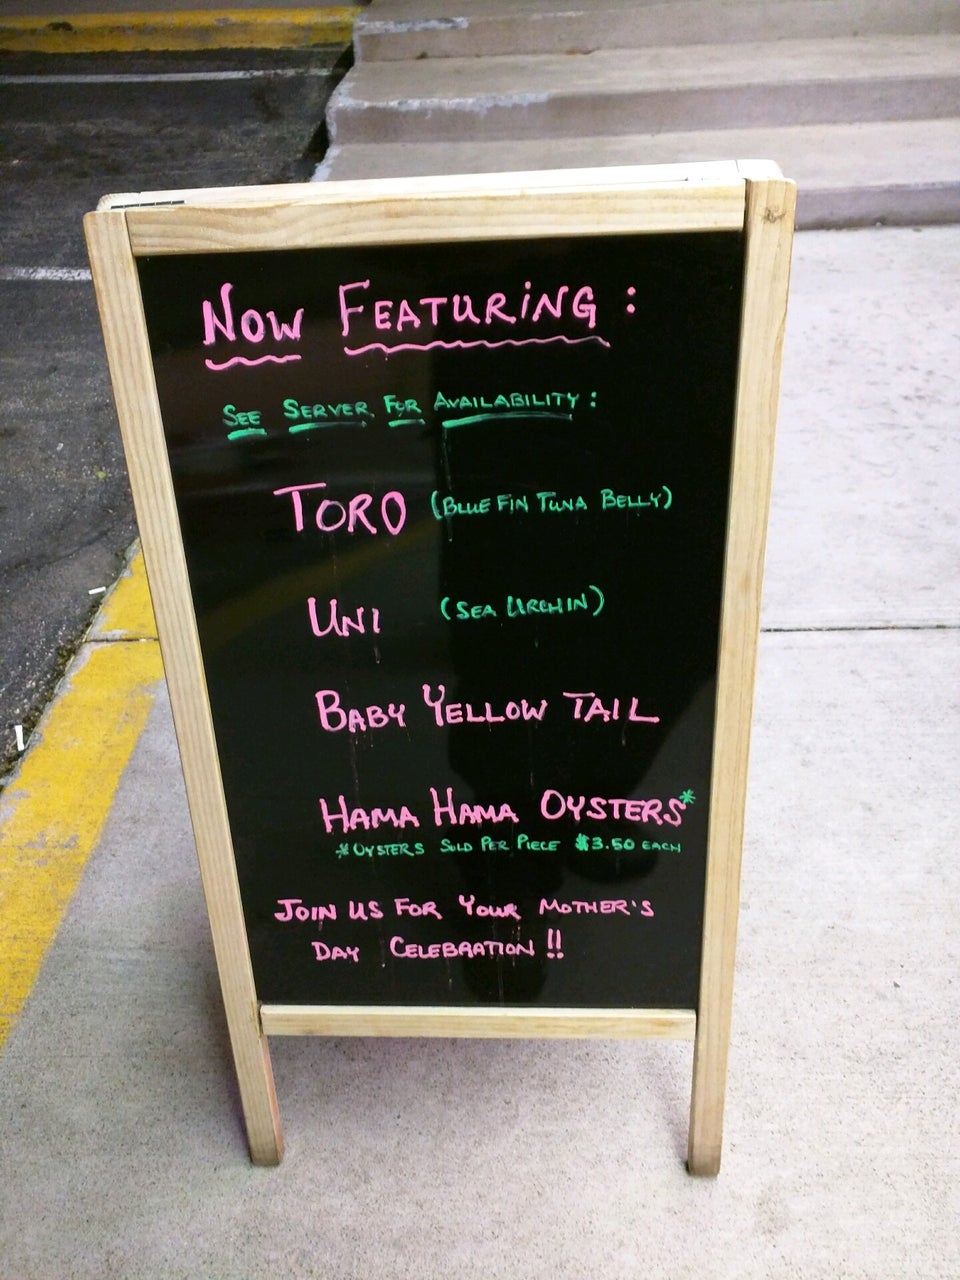 NOW FEATURING:
SEE SERVER FOR AVAILABILITY:
TORO (BLUE FIN TUNA BELLY)
UNI (SEA URCHIN)
BABY YELLOW TAIL
HAMA HAMA OYSTERS*
*OYSTERS SOLD PER PIECE $3.50 EACH
JOIN US FOR YOUR MOTHER'S
DAY CELEBRATION!!